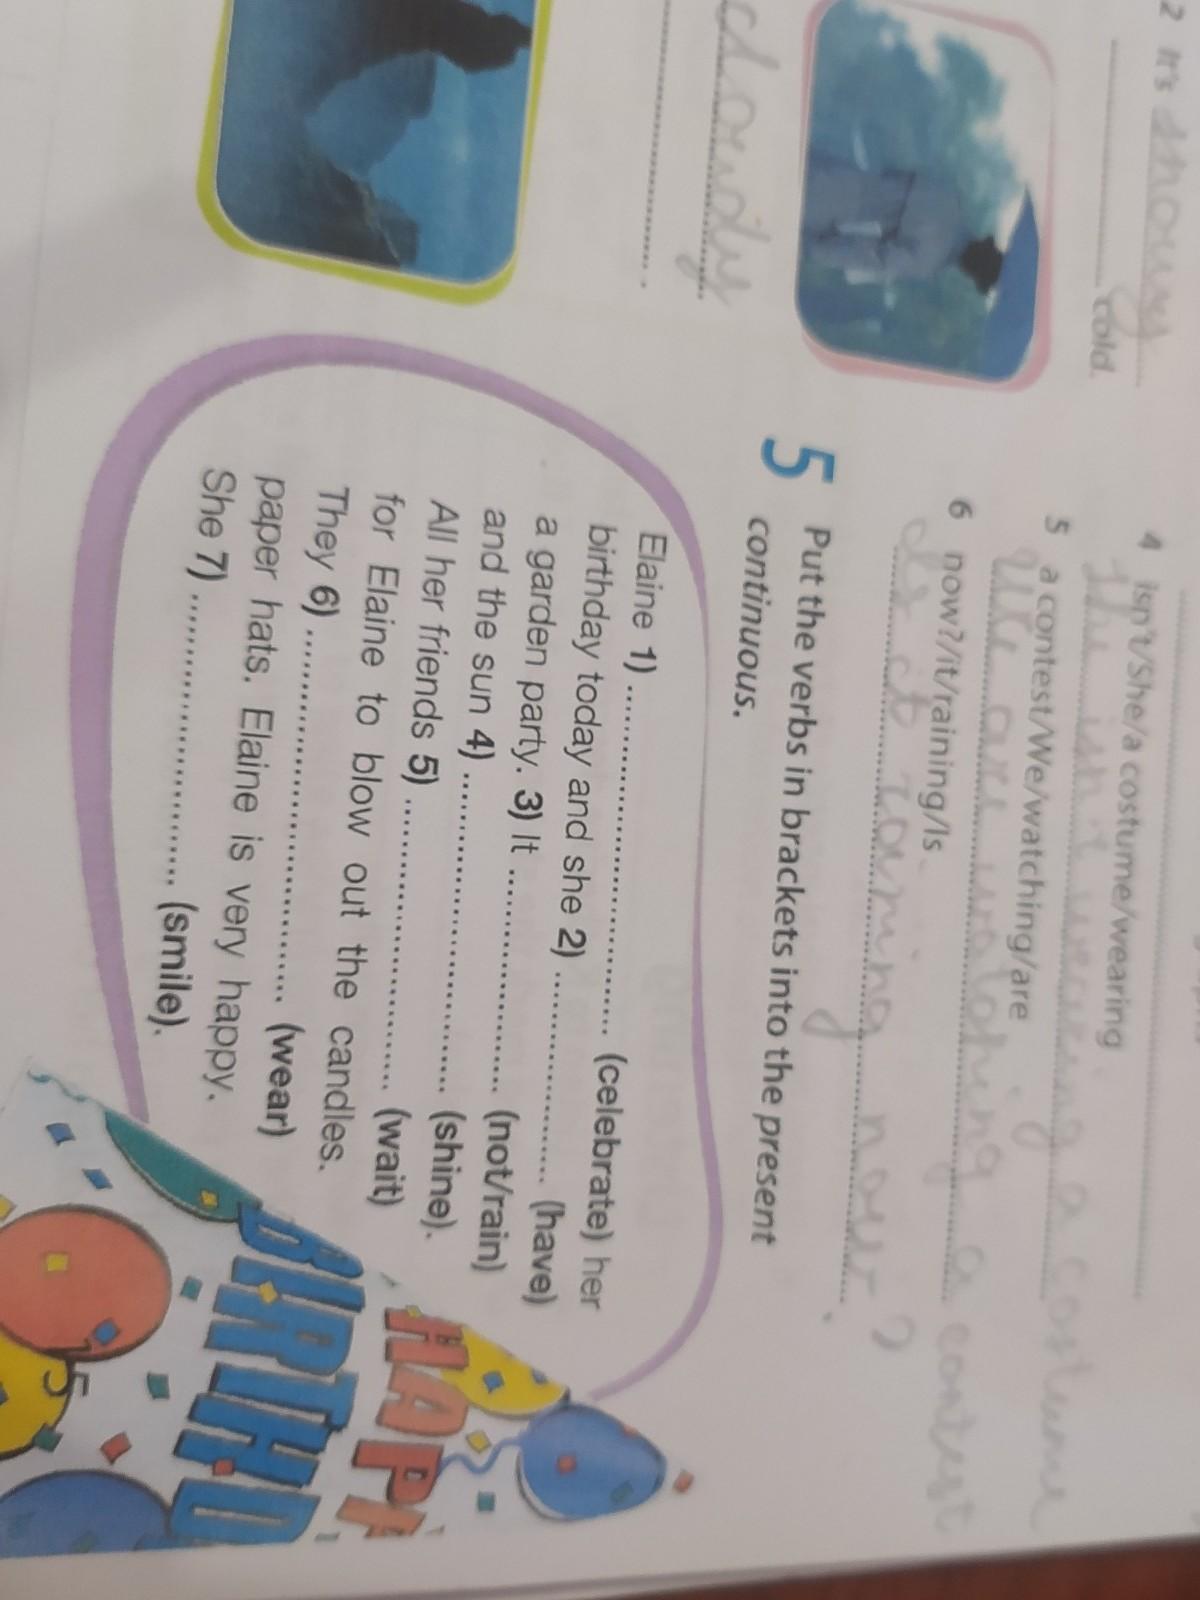 2 It's snowy
cold.
cloudy
4 isn't/She/a costume/wearing
She isn't wearing a costume
5 a contest/We/watching/are
We are watching a contest
6 now?/it/raining/Is
Is it raining now?
5 Put the verbs in brackets into the present
continuous.
Elaine 1) ........................... (celebrate) her
birthday today and she 2) ................. (have)
a garden party. 3) It .................. (not/rain)
and the sun 4) ......................... (shine).
All her friends 5) ....................... (wait)
for Elaine to blow out the candles.
They 6) ............................. (wear)
paper hats. Elaine is very happy.
She 7) ....................... (smile).
HAPP
BIRTHD
5